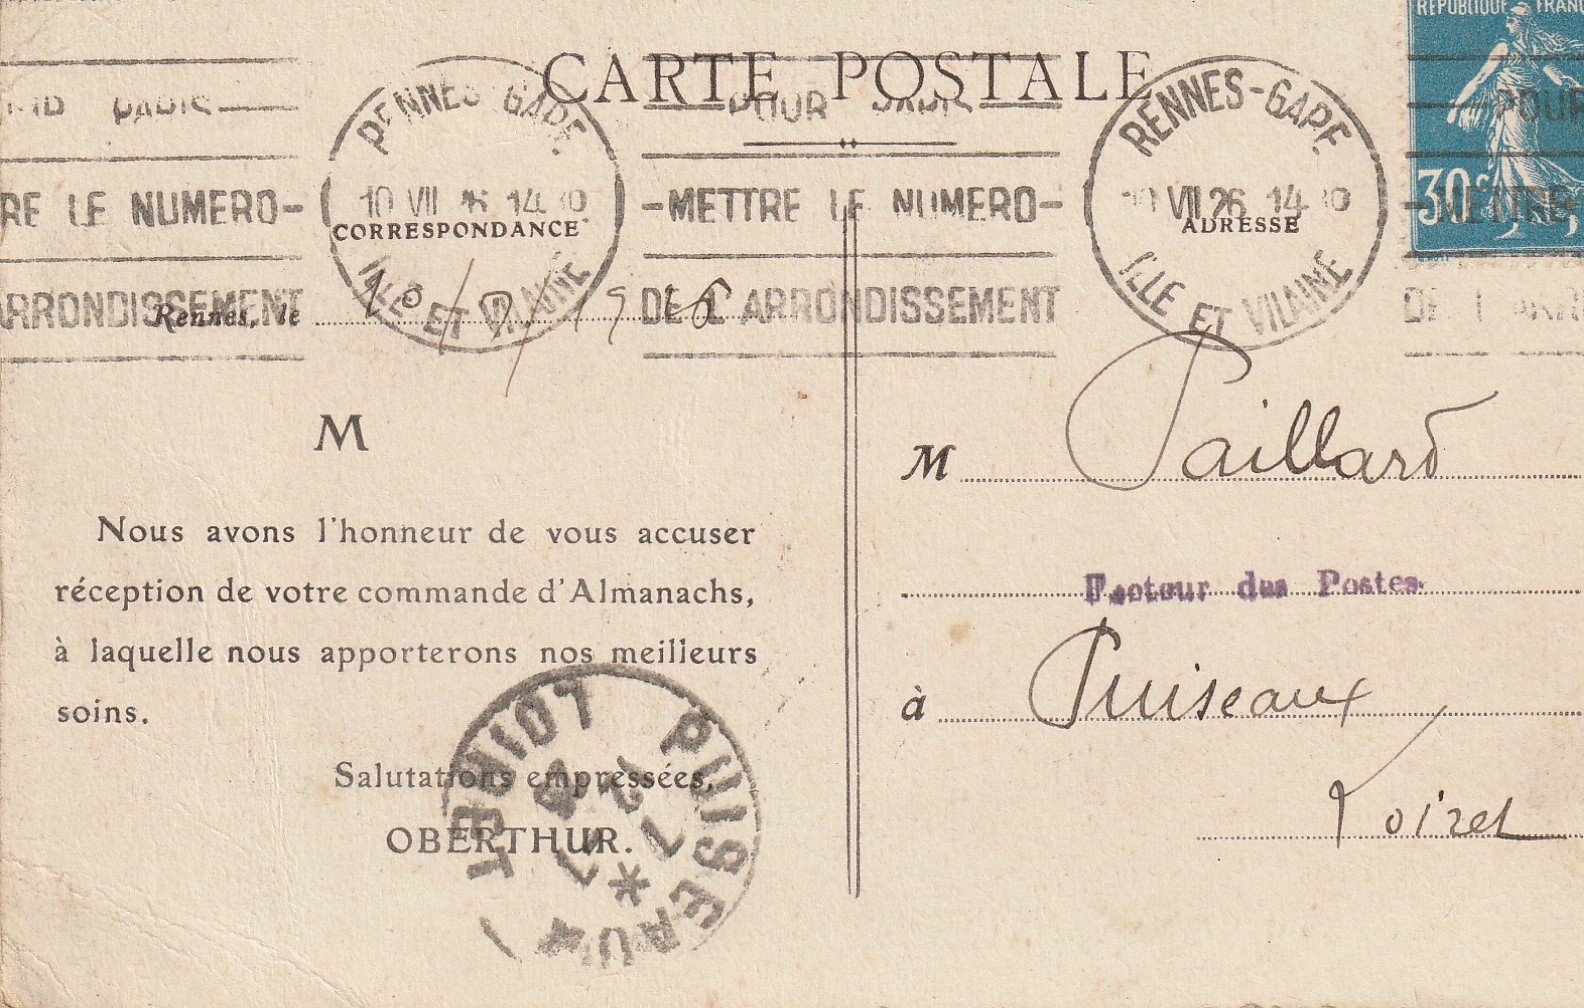 CARTE POSTALE
RÉPUBLIQUE FRANÇ
30c
RENNES-GARE
10 VII 26 14
ILLE ET VILAINE
POUR PARIS
METTRE LE NUMERO
DE L'ARRONDISSEMENT
RENNES-GARE
VII 26 14
ILLE ET VILAINE
POUR PARIS
RE LE NUMERO
ARRONDISSEMENT
POUR
METTRE
DE L'ARR
CORRESPONDANCE
Rennes, le 10/7/1926
M
Nous avons l'honneur de vous accuser
réception de votre commande d'Almanachs,
à laquelle nous apporterons nos meilleurs
soins.
Salutations empressées,
OBERTHUR.
PUISEAUX
LOIRET
12
7
ADRESSE
M Paillard
Facteur des Postes
à Puiseaux
Loiret